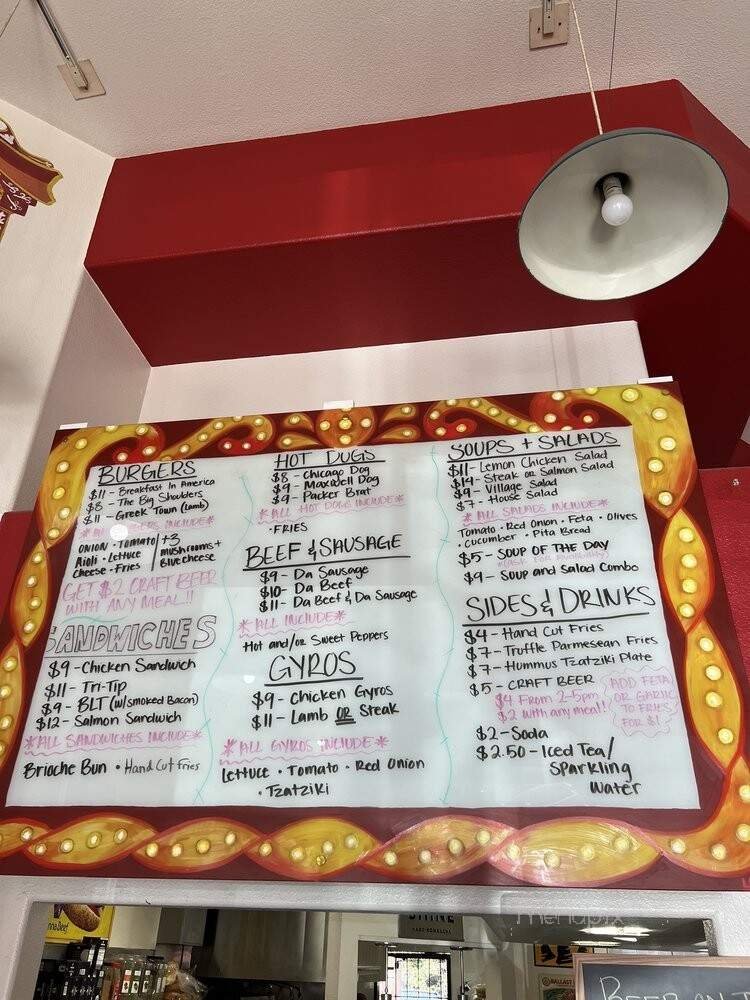 BURGERS
$11 - Breakfast In America
$8 - The Big Shoulders
$11 - Greek Town (Lamb)
INCLUDE*
ONION · TOMATO
Aioli · Lettuce
Cheese · Fries
+3
mushrooms +
Blue cheese
GET $2 CRAFT BEER
WITH ANY MEAL!!
SANDWICHES
$9 - Chicken Sandwich
$11 - Tri-Tip
$9 - BLT (w/smoked Bacon)
$12 - Salmon Sandwich
*ALL SANDWICHES INCLUDE*
Brioche Bun · Hand Cut Fries
HOT DOGS
$8 - Chicago Dog
$9 - Maxwell Dog
$9 - Packer Brat
*ALL HOT DOGS INCLUDE*
·FRIES
BEEF & SAUSAGE
$9 - Da Sausage
$10 - Da Beef
$11 - Da Beef & Da Sausage
*ALL INCLUDE*
Hot and/or Sweet Peppers
GYROS
$9 - Chicken Gyros
$11 - Lamb OR Steak
*ALL GYROS INCLUDE*
Lettuce · Tomato · Red Onion
· Tzatziki
SOUPS + SALADS
$11 - Lemon Chicken Salad
$14 - Steak or Salmon Salad
$9 - Village Salad
$7 - House Salad
*ALL SALADS INCLUDE*
Tomato · Red Onion · Feta · Olives
· Cucumber · Pita Bread
$5 - SOUP OF THE DAY
$9 - Soup and Salad Combo
SIDES & DRINKS
$4 - Hand Cut Fries
$7 - Truffle Parmesean Fries
$7 - Hummus Tzatziki Plate
$5 - CRAFT BEER
$4 From 2-5pm
$2 with any meal!
ADD FETA
OR GARLIC
TO FRIES
FOR $1
$2 - Soda
$2.50 - Iced Tea/
Sparkling
Water
menupix